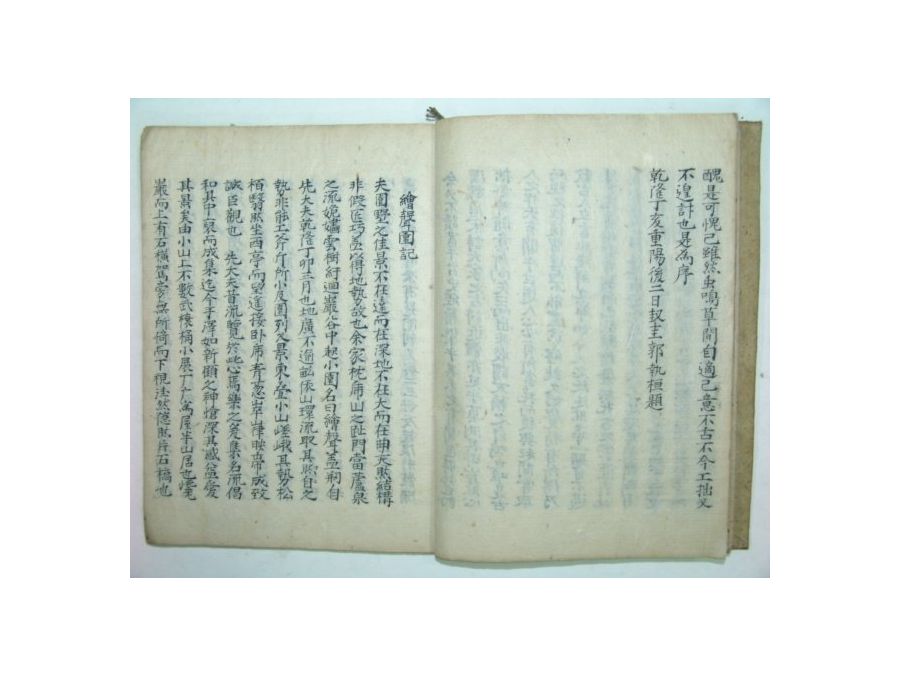 醜是可愧已雖然虫鳴草間自適己意不古不今工拙又
不遑計也是為序
乾隆丁亥重陽後二日奴主郭執桓題
繪聲園記
夫園墅之佳景不在遠而在深地不在大而在朗天然結構
非假匠巧盖以得地勢故也余家枕庸山之趾門當蘆泉
之流娩嫿雲樹紆迴巖谷中起小園名曰繪聲盖剏自
先大夫乾隆丁卯三月也地廣不過畝依山環流取其然自之
勢非能工斧斤所小及園列八景東壹小山嵯峨其勢松
栢翳然坐西亭而望遙接卧席青葱崒嵂映帝成致
誠巨觀也 先大夫昔流覽於此心焉樂之爰集名流倡
和其中裒而成集迄今手澤如新顧之神愴深其感益愛
其景矣由小山上不數武榱桷小展丁亡寓屋半山居也繞
巖而上有石橫駕旁無所倚而下視法然隱然片石橋也